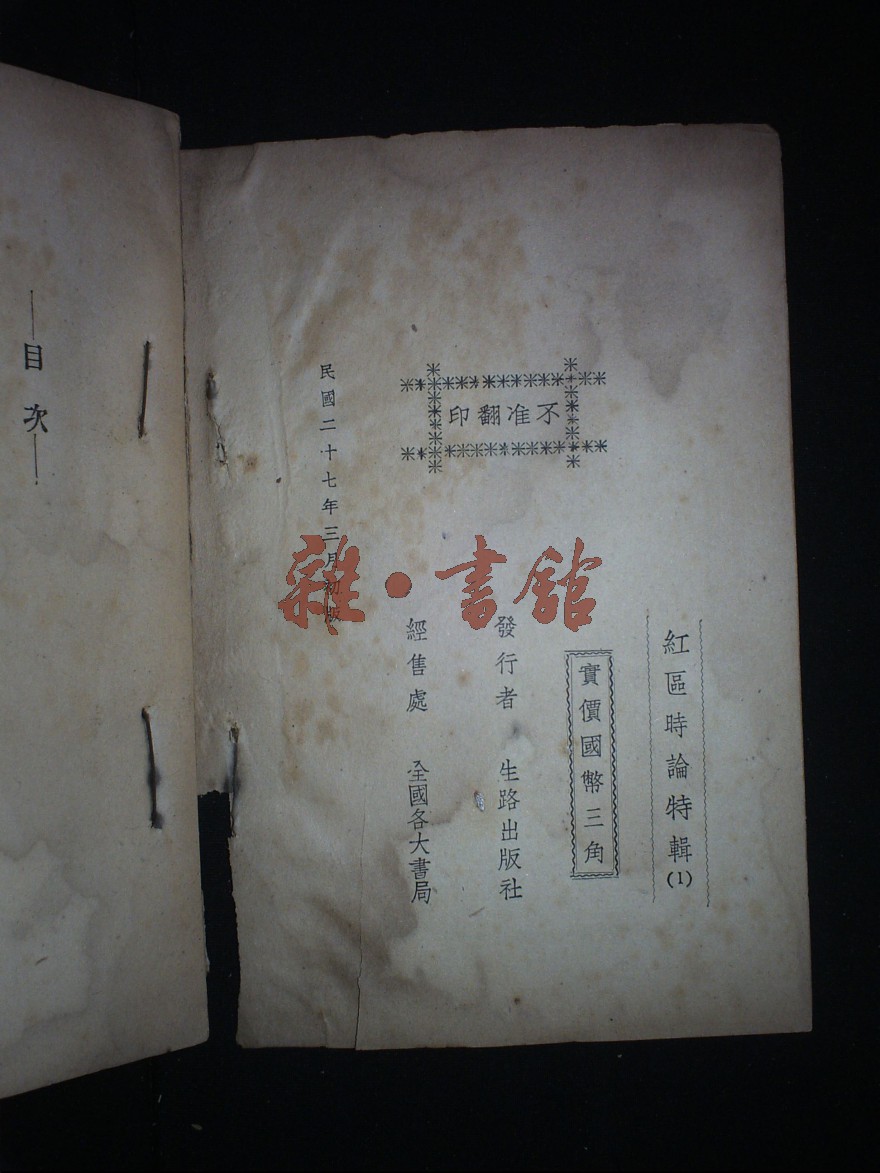 紅區時論特輯(1)
實價國幣三角
發行者 生路出版社
經售處 全國各大書局
印翻准不
民國二十七年三月初版
雜·書館
—目次—